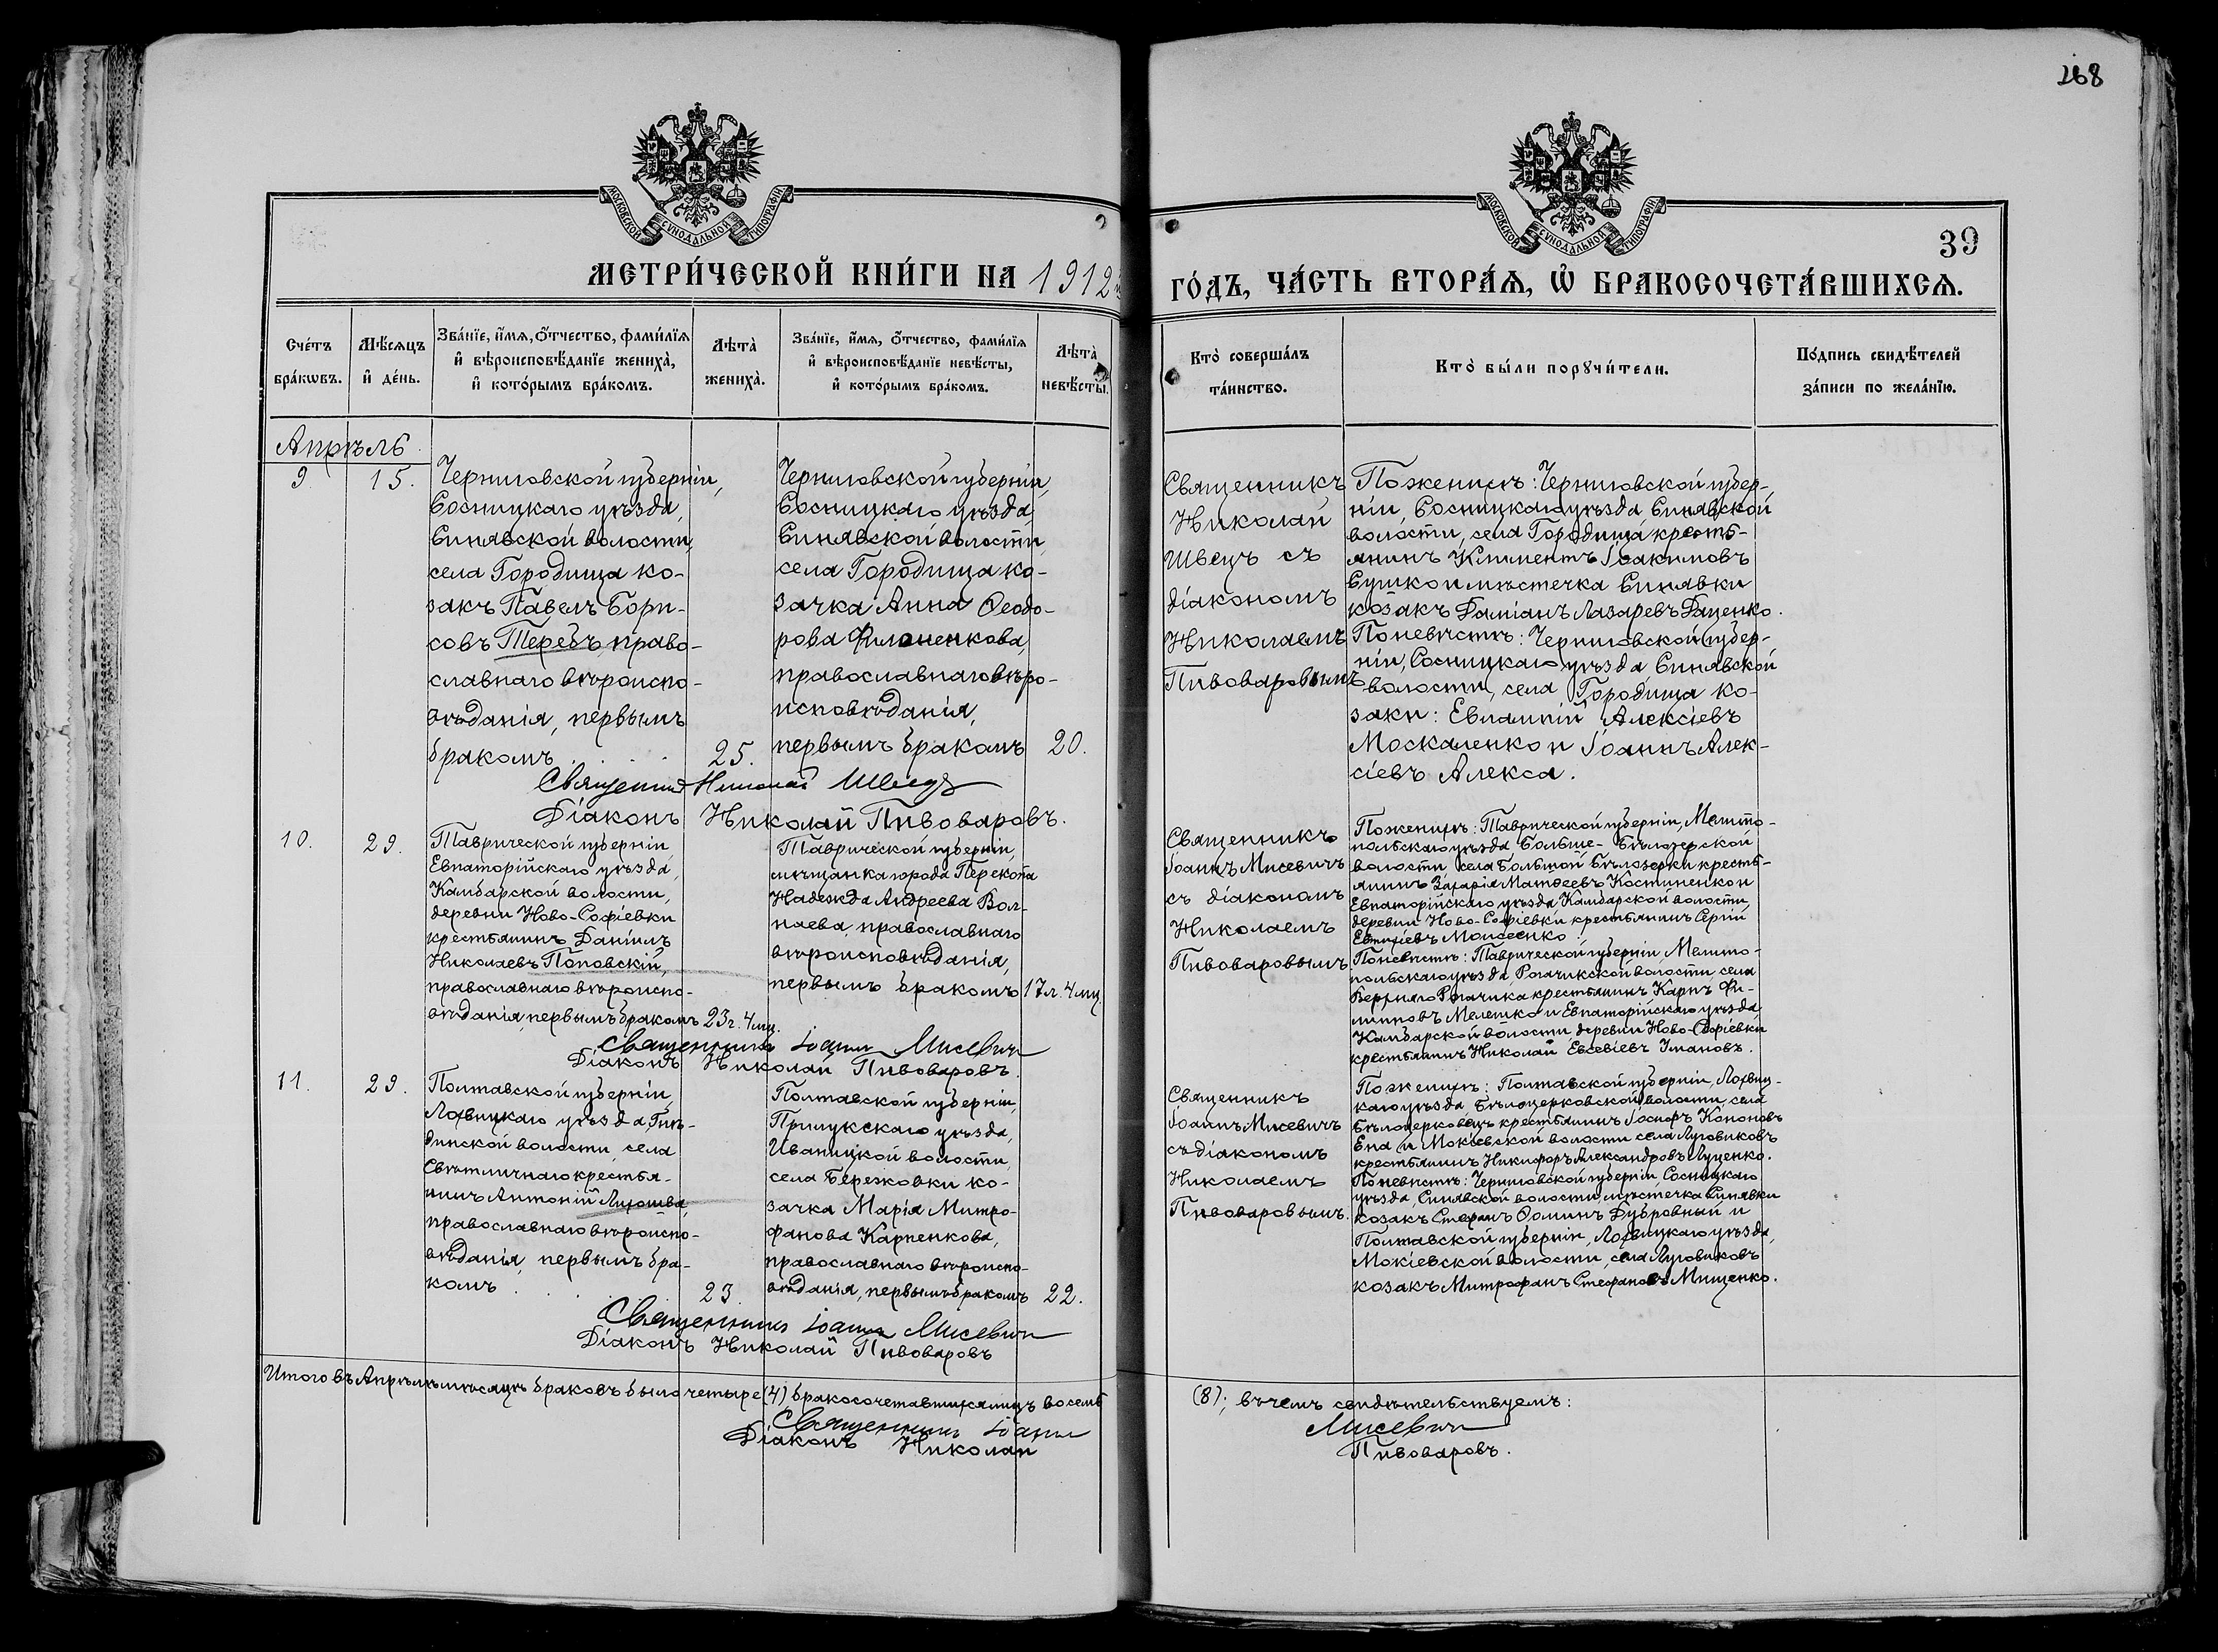 268
МОСКОВСКОЙ СѴНОДАЛЬНОЙ ТИПОГРАФІИ
МЕТРИ́ЧЕСКОЙ КНИ́ГИ НА 1912
Сче́тъ бра́кωвъ.
Мѣ́сяцъ и҆ де́нь.
Зва́нїе, и҆́мѧ, ѻ҆́тчество, фами́лїѧ
и҆ вѣроисповѣ́данїе жениха̀,
и҆ кото́рымъ бра́комъ.
Лѣта̀ жениха̀.
Зва́нїе, и҆́мѧ, ѻ҆́тчество, фами́лїѧ
и҆ вѣроисповѣ́данїе невѣ́сты,
и҆ кото́рымъ бра́комъ.
Лѣта̀ невѣ́сты.
МОСКОВСКОЙ СѴНОДАЛЬНОЙ ТИПОГРАФІИ
39
ГО́ДЪ, ЧА́СТЬ ВТОРА́Ѧ, Ѽ БРАКОСОЧЕТА́ВШИХСѦ.
Кто̀ соверша́лъ
та́инство.
Кто̀ бы́ли порꙋчи́тели.
По́дпись свидѣ́телей
за́писи по жела́нїю.
Апрѣль
9. 15.
Черниговской губерніи,
Сосницкаго уѣзда,
Синявской волости,
села Городища ко-
закъ Павелъ Бори-
совъ Теребъ право-
славнаго вѣроиспо-
вѣданія, первымъ
бракомъ . . . 25.
Черниговской губерніи,
Сосницкаго уѣзда,
Синявской волости,
села Городища ко-
зачка Анна Ѳеодо-
рова Филоненкова,
православнаго вѣро-
исповѣданія,
первымъ бракомъ 20.
Священникъ Николай Швецъ
Діаконъ Николай Пивоваровъ.
Священникъ
Николай
Швецъ съ
діакономъ
Николаемъ
Пивоваровымъ
По женихѣ: Черниговской губер-
ніи, Сосницкаго уѣзда Синявской
волости, села Городища кресть-
янинъ Климентъ Іоакимовъ
Сушко и мѣстечка Синявки
козакъ Даміанъ Лазаревъ Даценко.
По невѣстѣ: Черниговской губер-
ніи, Сосницкаго уѣзда Синявской
волости, села Городища ко-
заки: Евлампій Алексіевъ
Москаленко и Іоаннъ Алек-
сіевъ Алекса.
10. 29.
Таврической губерніи
Евпаторійскаго уѣзда,
Камбарской волости,
деревни Ново-Софіевки
крестьянинъ Даніилъ
Николаевъ Поповскій,
православнаго вѣроиспо-
вѣданія, первымъ бракомъ 23г. 4мц.
Таврической губерніи,
мѣщанка города Перекопа
Надежда Андреева Вол-
наева, православнаго
вѣроисповѣданія,
первымъ бракомъ 17л. 4мц.
Священникъ Іоаннъ Мисевичъ
Діаконъ Николай Пивоваровъ.
Священникъ
Іоаннъ Мисевичъ
съ діакономъ
Николаемъ
Пивоваровымъ.
По женихѣ: Таврической губерніи, Мелито-
польскаго уѣзда Больше-Бѣлозерской
волости, села Большой Бѣлозерки кресть-
янинъ Захарія Матѳеевъ Костиненко и
Евпаторійскаго уѣзда Камбарской волости,
деревни Ново-Софіевки крестьянинъ Сергій
Евтихіевъ Моисеенко.
По невѣстѣ: Таврической губерніи, Мелито-
польскаго уѣзда, Рогачикской волости села
Верхняго Рогачика крестьянинъ Карпъ Фи-
липповъ Мелешко и Евпаторійскаго уѣзда
Камбарской волости деревни Ново-Софіевки
крестьянинъ Николай Евсевіевъ Имановъ.
11. 29.
Полтавской губерніи,
Лохвицкаго уѣзда, Гнѣ-
динской волости, села
Свѣтличнаго крестья-
нинъ Антоній
православнаго вѣроиспо-
вѣданія, первымъ бра-
комъ . . . 23.
Полтавской губерніи,
Прилукскаго уѣзда,
Иваницкой волости,
села Березовки ко-
зачка Марія Митро-
фанова Карпенкова,
православнаго вѣроиспо-
вѣданія, первымъ бракомъ 22.
Священникъ Іоаннъ Мисевичъ
Діаконъ Николай Пивоваровъ
Священникъ
Іоаннъ Мисевичъ
съ діакономъ
Николаемъ
Пивоваровымъ.
По женихѣ: Полтавской губерніи, Лохвиц-
каго уѣзда, Бѣлоцерковской волости, села
Бѣлоцерковецъ крестьянинъ Іосифъ Кононовъ
Ена и Мокіевской волости села Луговиковъ
крестьянинъ Никифоръ Александровъ Луценко.
По невѣстѣ: Черниговской губерніи, Сосницкаго
уѣзда, Синявской волости, мѣстечка Синявки
козакъ Стефанъ Ѳоминъ Дубровный и
Полтавской губерніи, Лохвицкаго уѣзда,
Мокіевской волости, села Луговиковъ
козакъ Митрофанъ Стефановъ Мищенко.
Итого въ Апрѣлѣ мѣсяцѣ браковъ было четыре (4) бракосочетавшихся лицъ восемь
(8); въ чемъ свидѣтельствуемъ:
Священникъ Іоаннъ Мисевичъ
Діаконъ Николай Пивоваровъ.